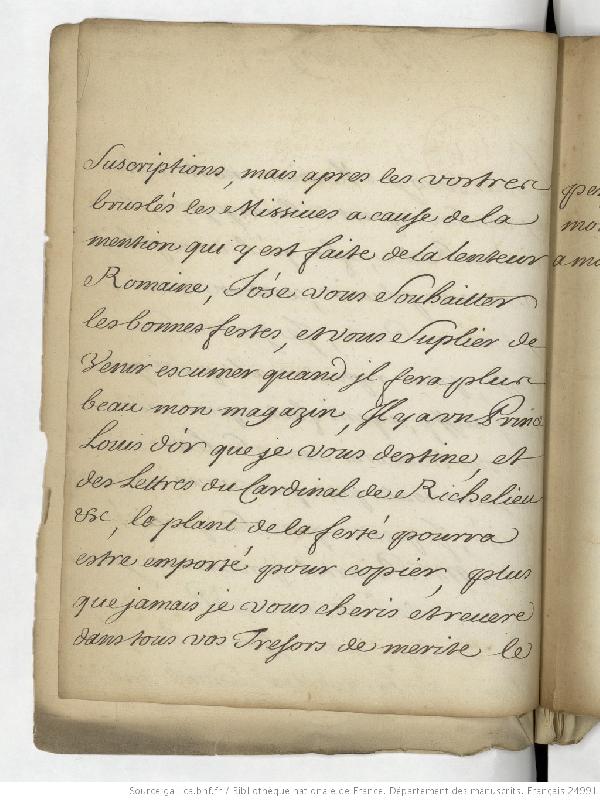 Suscriptions, mais apres les vostres
bruslés les Missiues a cause de la
mention qui y est faite de la lenteur
Romaine, J'ose vous Souhaitter
les bonnes festes, et vous Suplier de
Venir escumer quand jl fera plus
beau mon magazin, Jl y a vn Prince
Louis d'or que je vous destine, et
des Lettres du Cardinal de Richelieu
&c, le plant de la ferté pourra
estre emporté pour copier, plus
que jamais je vous cheris et reuere
dans tous vos Tresors de merite le
per
mo
a mo
Source gallica.bnf.fr / Bibliothèque nationale de France. Département des manuscrits. Français 24991